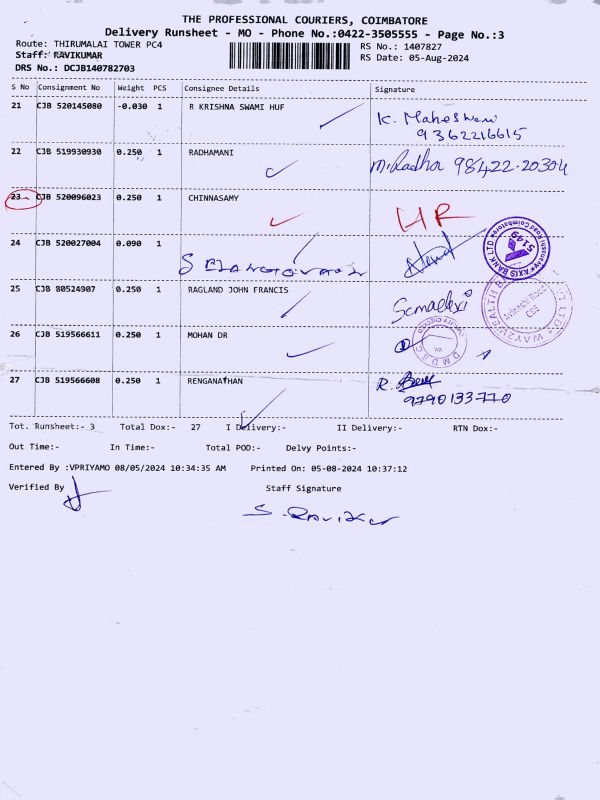 THE PROFESSIONAL COURIERS, COIMBATORE
Delivery Runsheet - MO - Phone No.:0422-3505555 - Page No.:3
Route: THIRUMALAI TOWER PC4 RS No.: 1407827
Staff: RAVIKUMAR RS Date: 05-Aug-2024
DRS No.: DCJB140782703
S No Consignment No Weight PCS Consignee Details Signature
21 CJB 520145080 -0.030 1 R KRISHNA SWAMI HUF K. Maheswari
9362216615
22 CJB 519930930 0.250 1 RADHAMANI M. Radha 98422.20304
23 CJB 520096023 0.250 1 CHINNASAMY
24 CJB 520027004 0.090 1
25 CJB 80524907 0.250 1 RAGLAND JOHN FRANCIS
26 CJB 519566611 0.250 1 MOHAN DR
27 CJB 519566608 0.250 1 RENGANATHAN R.
9790133770
AXIS BANK LTD
5149
WAY2WEALTH
Avinashi Road
CBE
Tot. Runsheet:- 3 Total Dox:- 27 I Delivery:- II Delivery:- RTN Dox:-
Out Time:- In Time:- Total POD:- Delvy Points:-
Entered By :VPRIYAMO 08/05/2024 10:34:35 AM Printed On: 05-08-2024 10:37:12
Verified By Staff Signature
S. Ravikumar